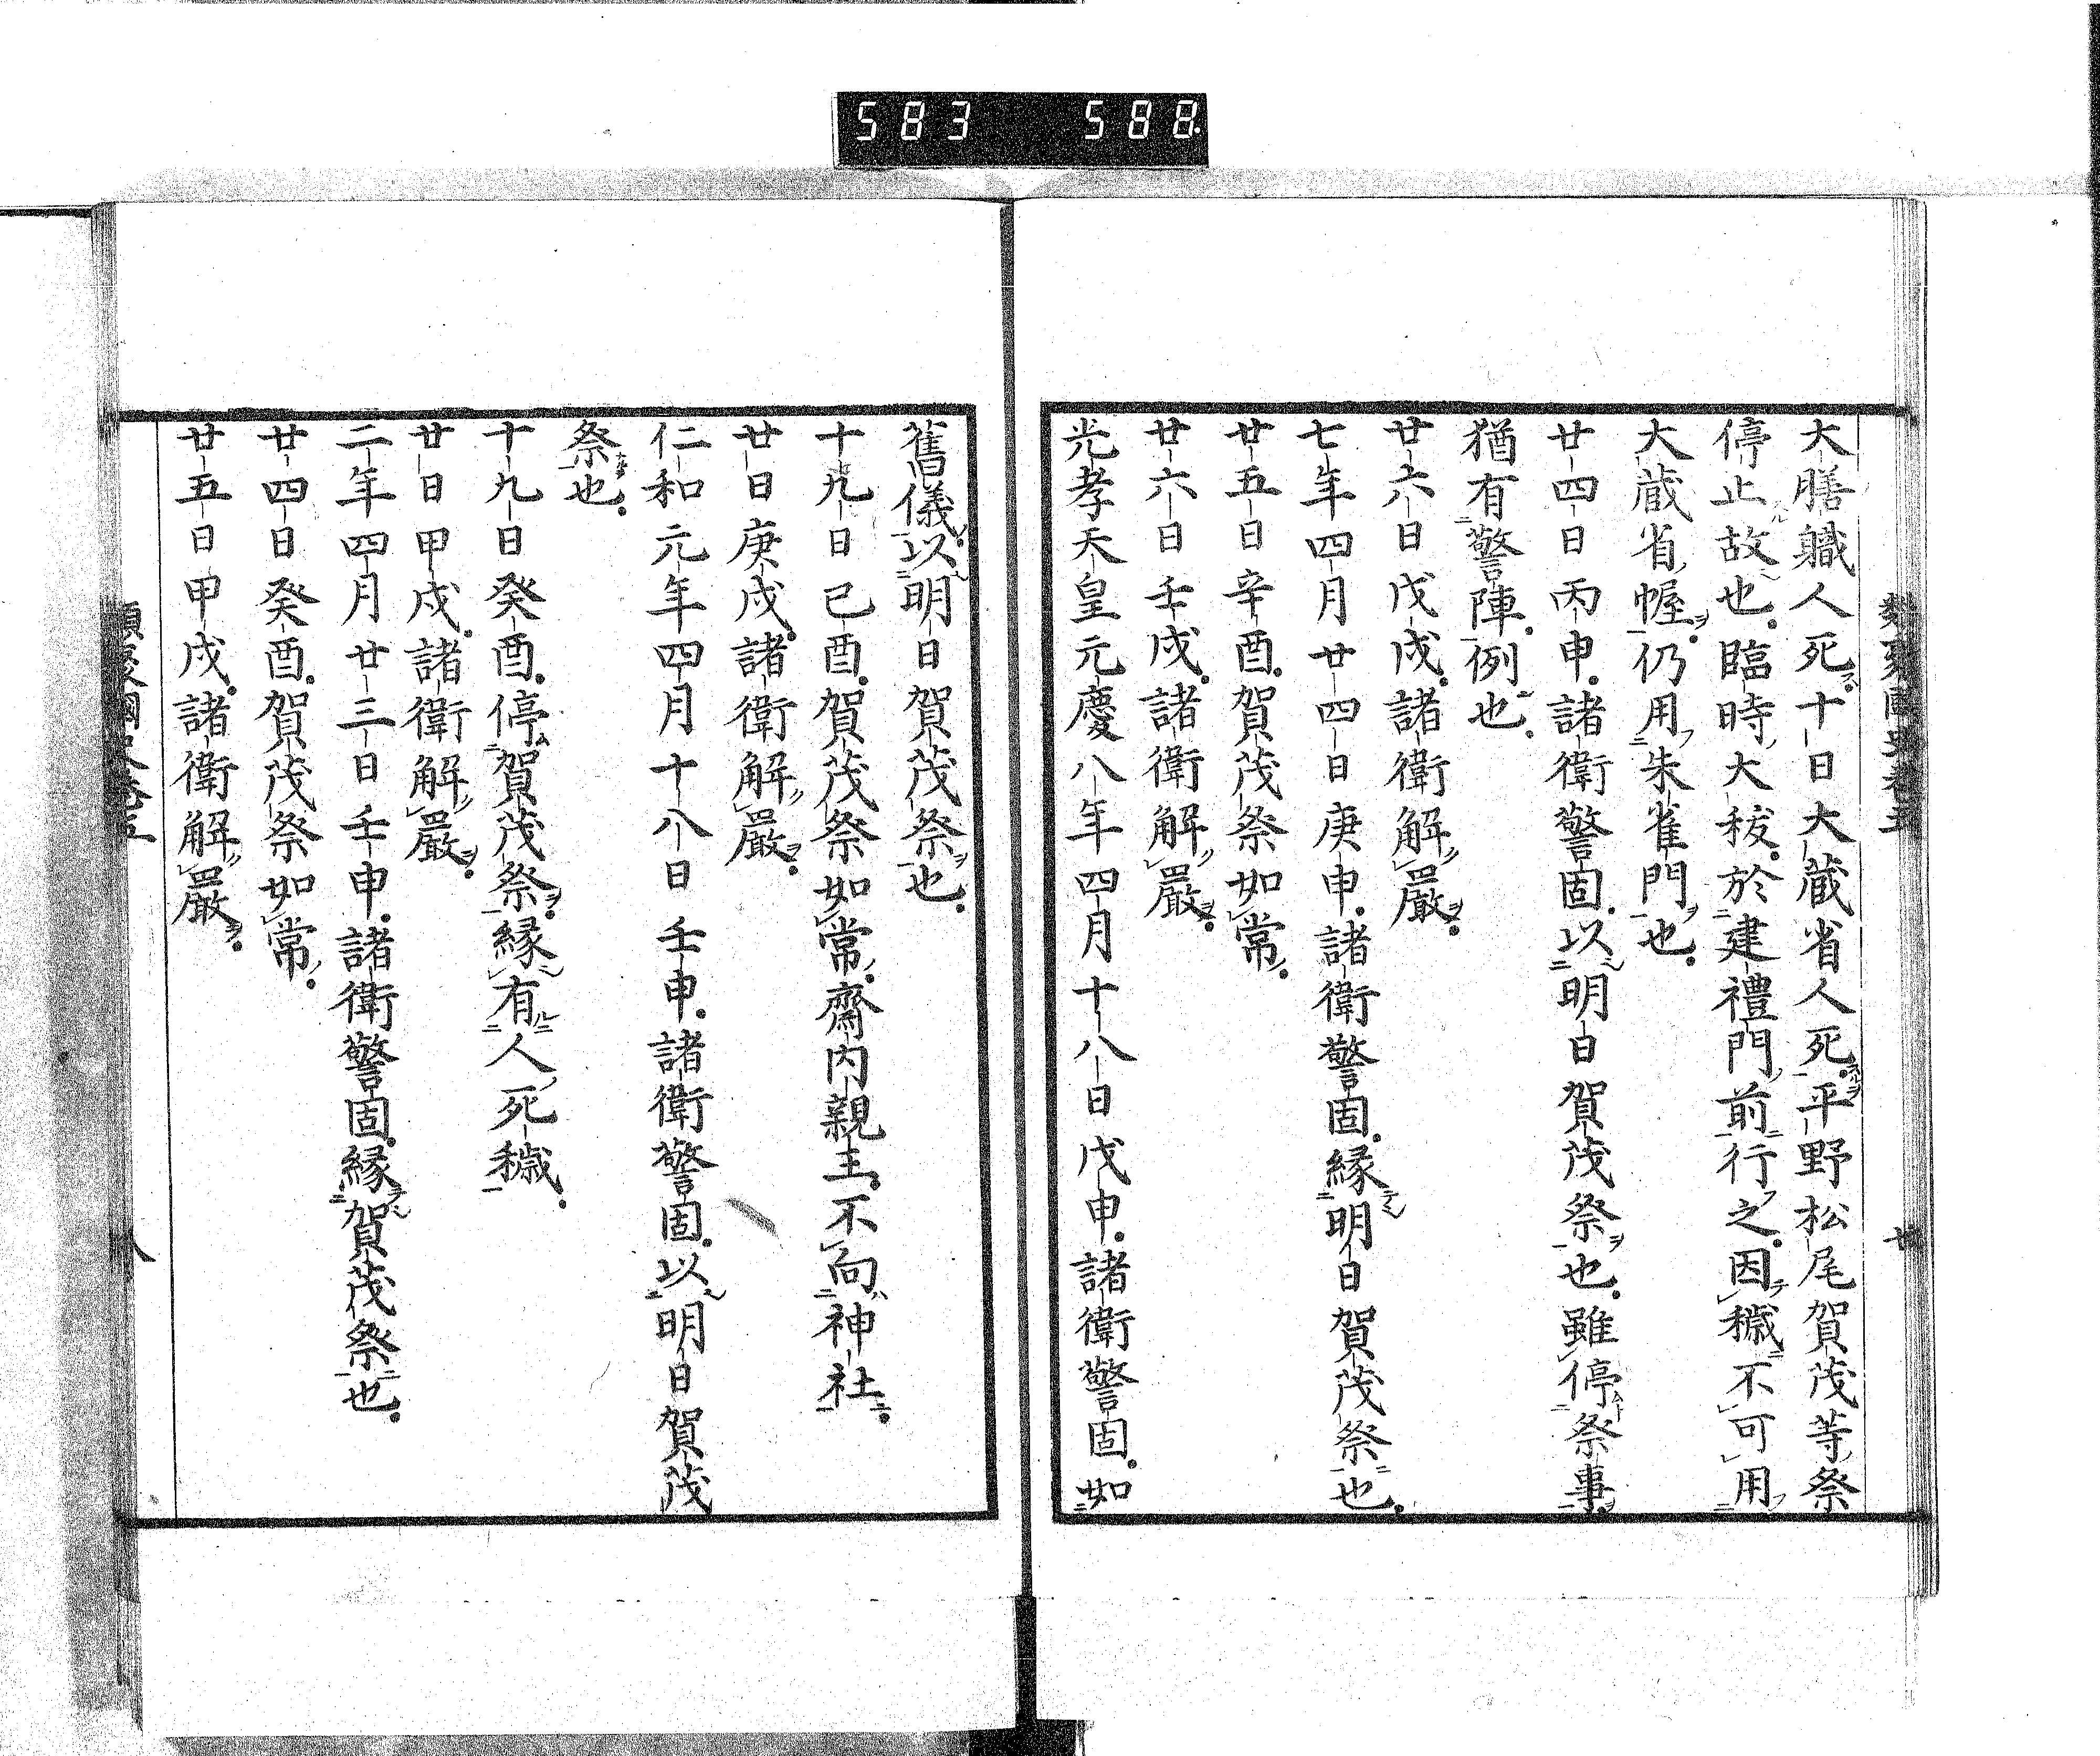 583 588
大膳職人死十日大蔵省人死平野松尾賀茂等祭
停止故也臨時大秡於建禮門前行之因穢不可用
大蔵省幄仍用朱雀門也
廿四日丙申諸衛警固以明日賀茂祭也雖停祭事
猶有警陣例也
廿六日戊戌諸衛解嚴
七年四月廿四日庚申諸衛警固縁明日賀茂祭也
廿五日辛酉賀茂祭如常
廿六日壬戌諸衛解嚴
光孝天皇元慶八年四月十八日戊申諸衛警固如
舊儀以明日賀茂祭也
十九日己酉賀茂祭如常齋内親王不向神社
廿日庚戌諸衛解嚴
仁和元年四月十八日壬申諸衛警固以明日賀茂
祭也
十九日癸酉停賀茂祭縁有人死穢
廿日甲戌諸衛解嚴
二年四月廿三日壬申諸衛警固縁賀茂祭也
廿四日癸酉賀茂祭如常
廿五日甲戌諸衛解嚴